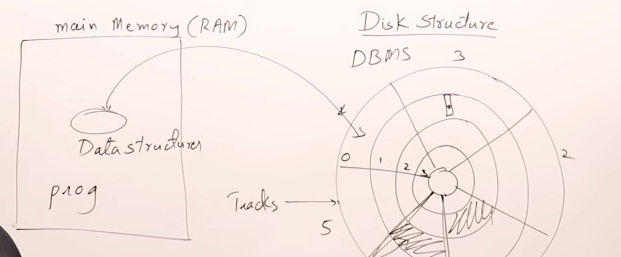 main Memory (RAM)
Datastructures
prog
Disk Structure
DBMS
3
2
0 1 2
Tracks
5